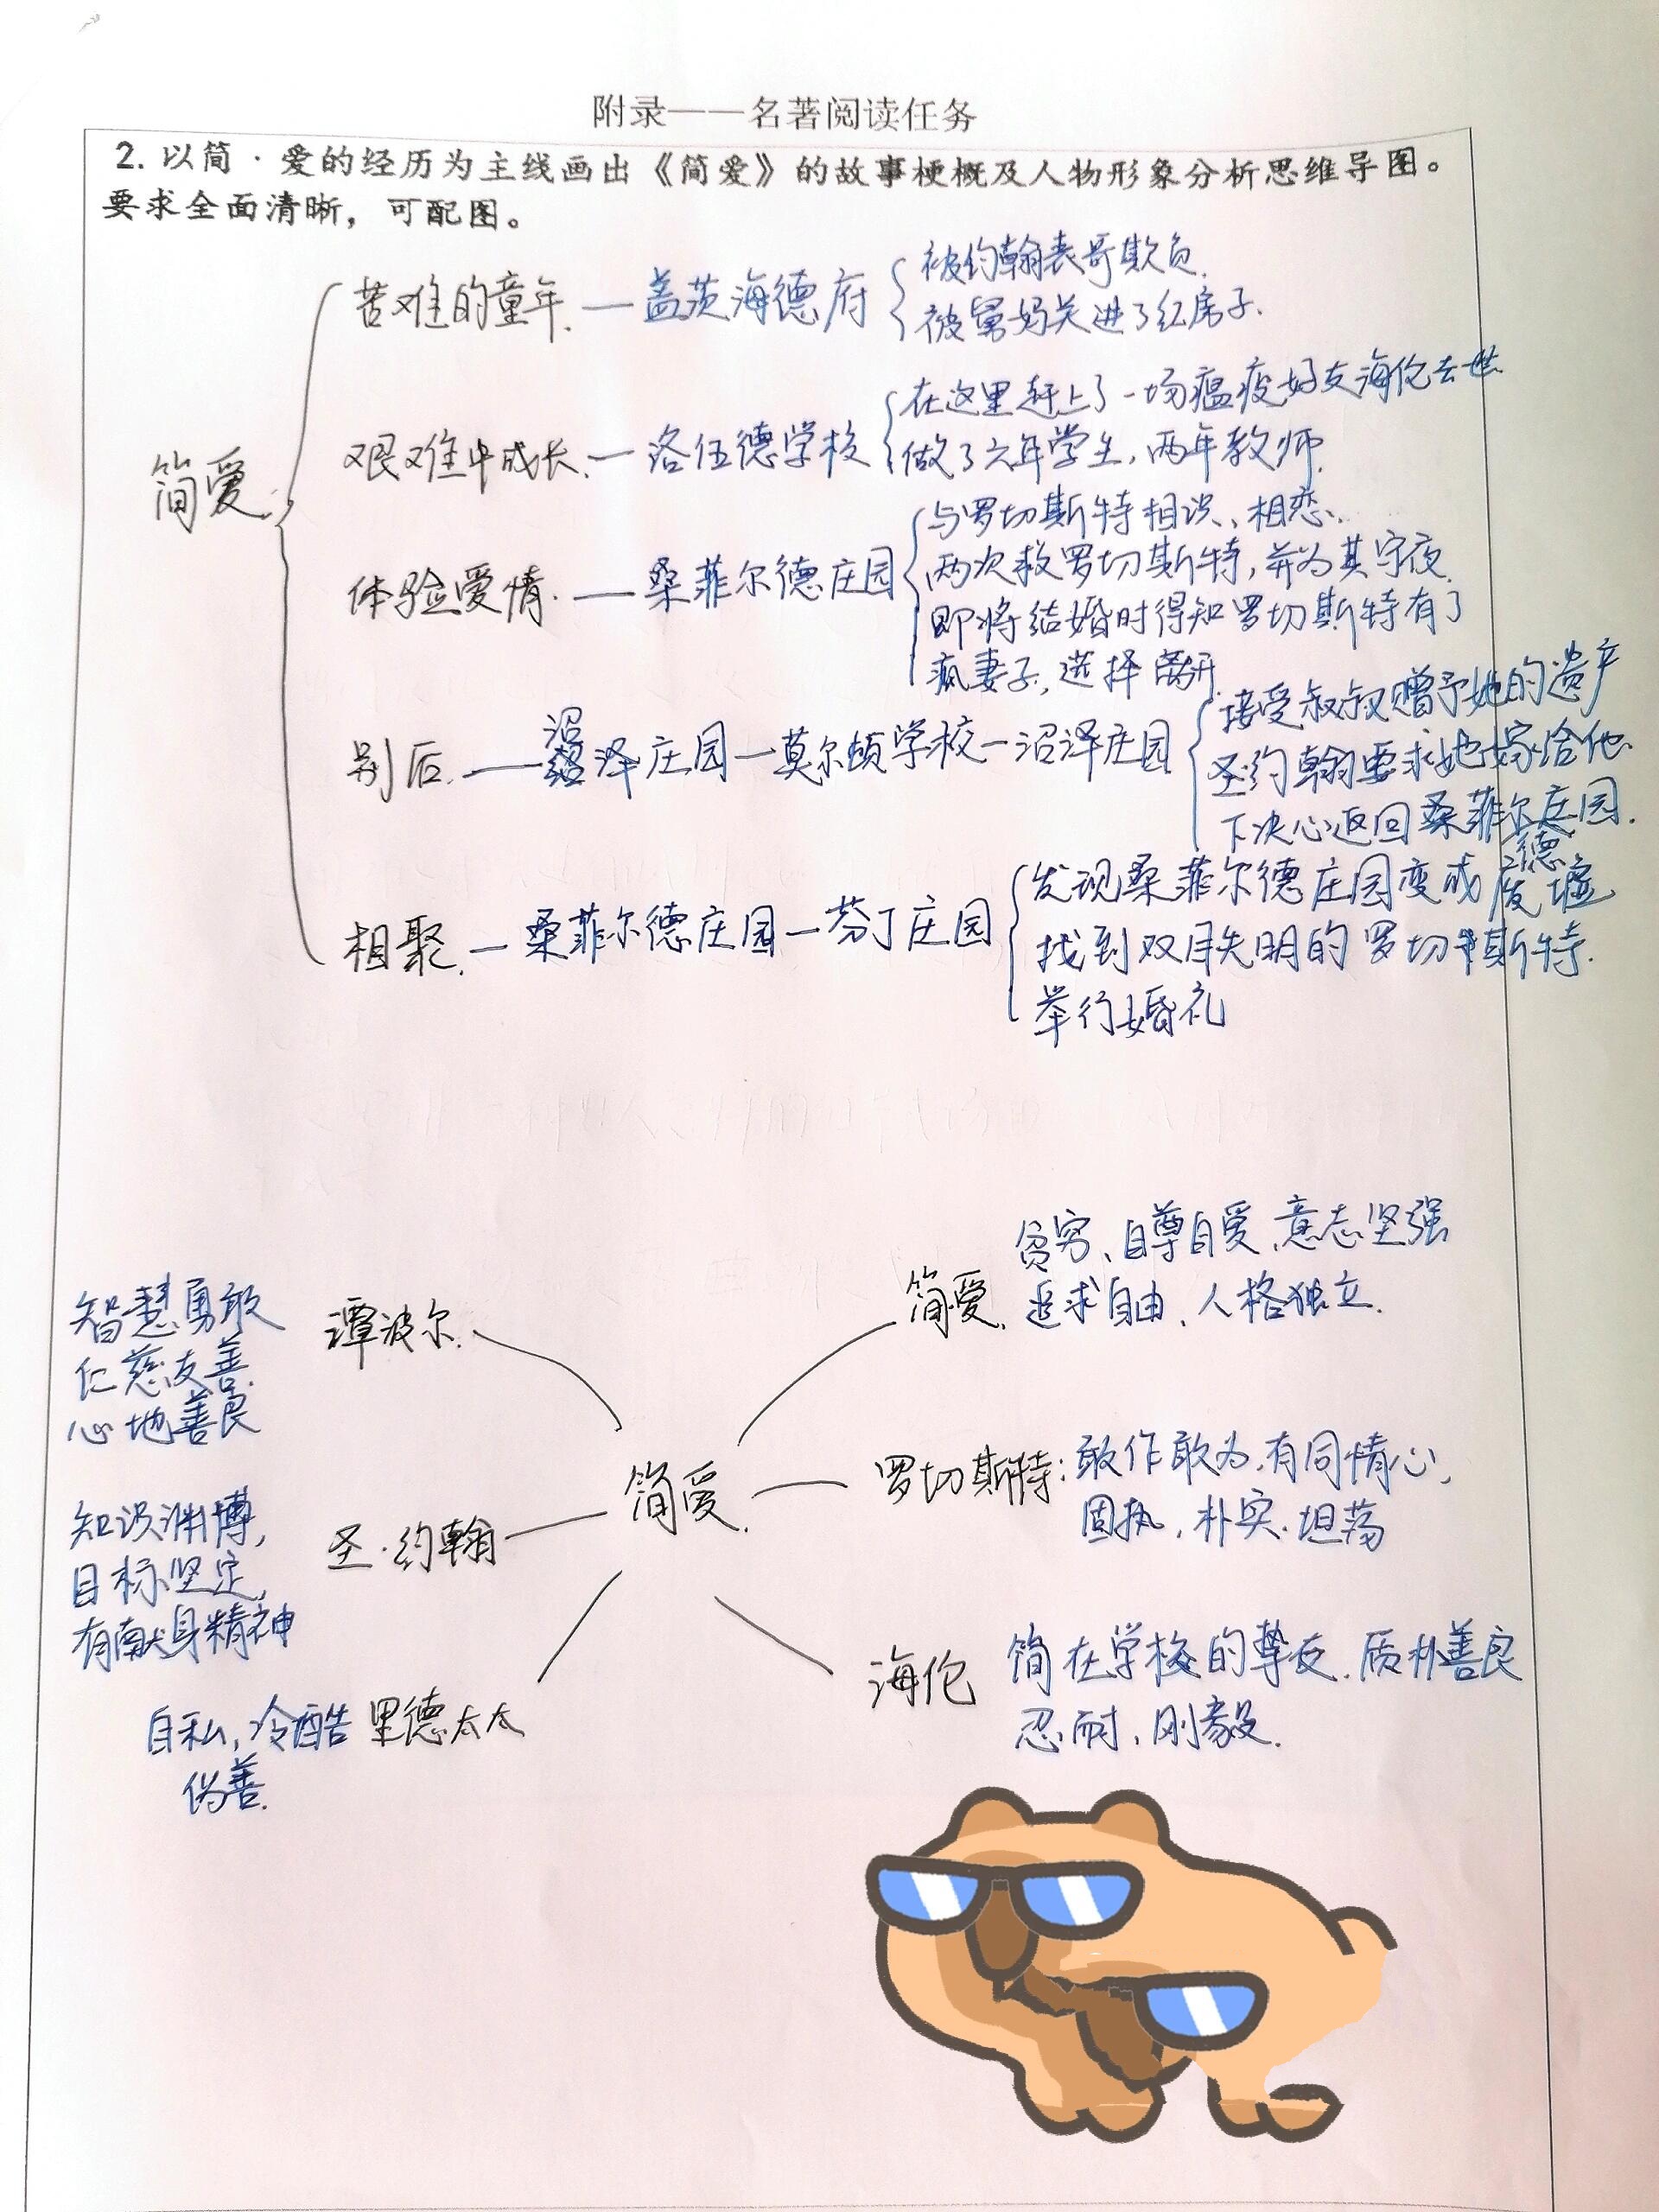 附录——名著阅读任务
2. 以简·爱的经历为主线画出《简爱》的故事梗概及人物形象分析思维导图。
要求全面清晰，可配图。
简爱.
苦难的童年.—盖茨海德府
被约翰表哥欺负.
被舅妈关进了红房子.
艰难中成长.—洛伍德学校
在这里赶上了一场瘟疫好友海伦去世
做了六年学生,两年教师.
体验爱情.—桑菲尔德庄园
与罗切斯特相识、相恋.
两次救罗切斯特,并为其守夜.
即将结婚时得知罗切斯特有了
疯妻子,选择离开.
别后.—沼泽庄园—莫尔顿学校—沼泽庄园
接受叔叔赠予她的遗产
圣约翰要求她嫁给他.
下决心返回桑菲尔德庄园.
相聚.—桑菲尔德庄园—芬丁庄园
发现桑菲尔德庄园变成废墟
找到双目失明的罗切斯特.
举行婚礼
简爱.
贫穷、自尊自爱、意志坚强
追求自由、人格独立.
谭波尔.
智慧勇敢
仁慈友善.
心地善良
简爱.
罗切斯特:敢作敢为,有同情心,
固执,朴实.坦荡
圣·约翰
知识渊博,
目标坚定,
有献身精神
海伦 简在学校的挚友.质朴善良
忍耐,刚毅.
里德太太
自私,冷酷
伪善.